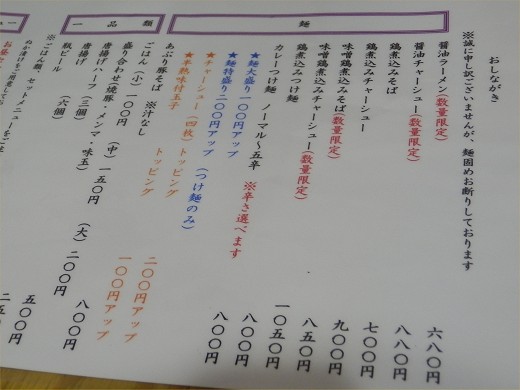 おしながき
※誠に申し訳ございませんが、麺固めお断りしております
麺
醤油ラーメン(数量限定) 六八〇円
醤油チャーシュー(数量限定) 八八〇円
鶏煮込みそば 七〇〇円
鶏煮込みチャーシュー 九〇〇円
味噌鶏煮込みそば(数量限定) 八五〇円
味噌鶏煮込みチャーシュー(数量限定) 一〇五〇円
鶏煮込みつけ麺 八〇〇円
カレーつけ麺 ノーマル～五辛 ※辛さ選べます 八〇〇円
★麺大盛り一〇〇円アップ
★麺特盛り二〇〇円アップ (つけ麺のみ)
★チャーシュー(四枚)トッピング 二〇〇円アップ
★半熟味付玉子 トッピング 一〇〇円アップ
一品類
あぶり豚そば ※汁なし 八〇〇円
ごはん (小) 一〇〇円 (中) 一五〇円 (大) 二〇〇円
盛り合わせ(焼豚・メンマ・味玉)
唐揚げハーフ (三個)
唐揚げ (六個) 五〇〇円
瓶ビール
※ごはん類 セットメニューを